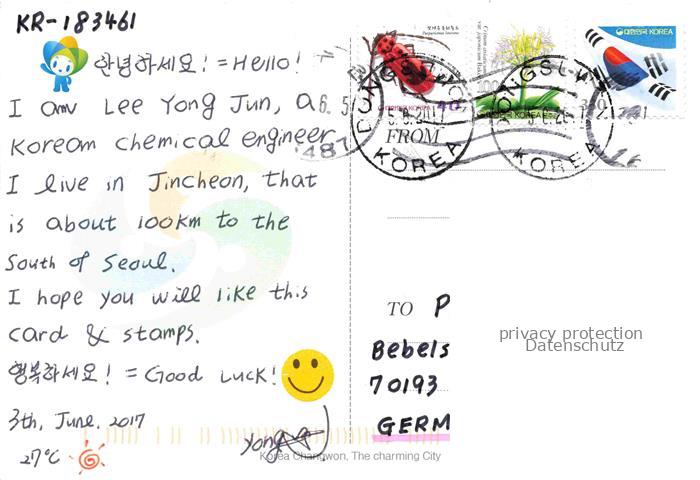 KR-183461
안녕하세요! = Hello!
I am Lee Yong Jun, a
Korean chemical engineer
I live in Jincheon, that
is about 100km to the
South of Seoul.
I hope you will like this
card & stamps.
행복하세요! = Good Luck!
3th, June. 2017
27°C
Yong
Korea Changwon, The charming City
대한민국 KOREA
KOREA
KOREA
FROM
TO P
Bebels
70193
GERM
privacy protection
Datenschutz